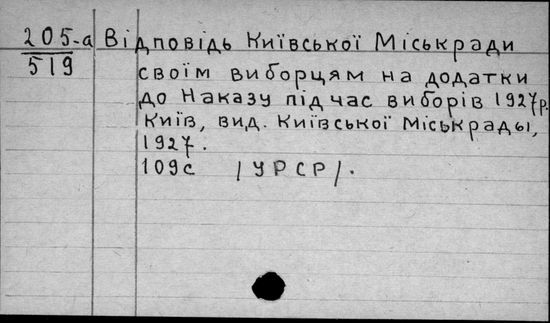 205-а Відповідь Київської Міськради
519 своїм виборцям на додатки
до Наказу під час виборів 1927р.
Київ, вид. Київської Міськрады,
1927.
109с /УРСР/.